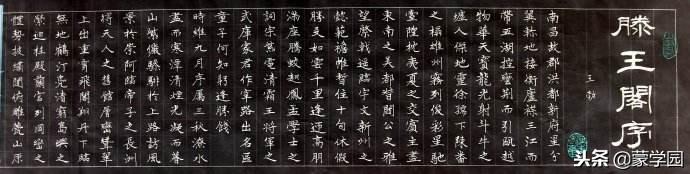 滕王閣序
王勃
南昌故郡洪都新府星分
翼軫地接衡廬襟三江而
帶五湖控蠻荊而引甌越
物華天寶龍光射斗牛之
墟人傑地靈徐孺下陳蕃
之榻雄州霧列俊彩星馳
臺隍枕夷夏之交賓主盡
東南之美都督閻公之雅
望棨戟遙臨宇文新州之
懿範襜帷暫住十旬休假
勝友如雲千里逢迎高朋
滿座騰蛟起鳳孟學士之
詞宗紫電清霜王將軍之
武庫家君作宰路出名區
童子何知躬逢勝餞
時維九月序屬三秋潦水
盡而寒潭清煙光凝而暮
山紫儼驂騑於上路訪風
景於崇阿臨帝子之長洲
得天人之舊館層巒聳翠
上出重霄飛閣翔丹下臨
無地鶴汀鳧渚窮島嶼之
縈迴桂殿蘭宮列岡巒之
體勢披繡闥俯雕甍山原
头条@蒙学园